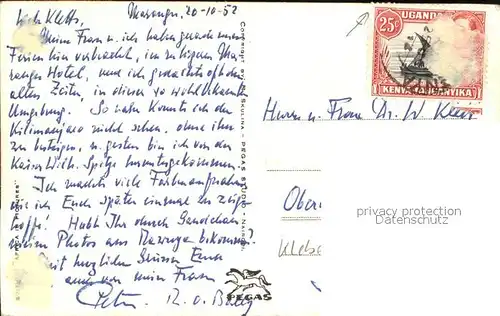 Marangu, 20-10-52
Liebe Kletts,
Meine Frau u. ich haben gerade unsere
Ferien hier verbracht, im ruhigen Ma-
rangu Hotel, und ich gedachte oft der
alten Zeiten, in dieser so wohlbekannten
Umgebung. So nahe konnte ich den
Kilimanjaro nicht sehen, ohne ihn
zu besteigen, u. gestern bin ich von der
Kaiser Wilh. Spitze heruntergekommen.
Ich machte viele Farbenaufnahmen
die ich Euch später einmal zu zeigen
hoffe! Habt Ihr durch
meine Photos aus bekommen?
Mit herzlichen Grüssen Euer
auch von meiner Frau
Peter
COPYRIGHT BY SKULINA - PEGAS STUDIO - NAIROBI
PEGAS
UGANDA
25c
KENYA TANGANYIKA
Herrn u. Frau Dr. W.
Ober
privacy protection
Datenschutz